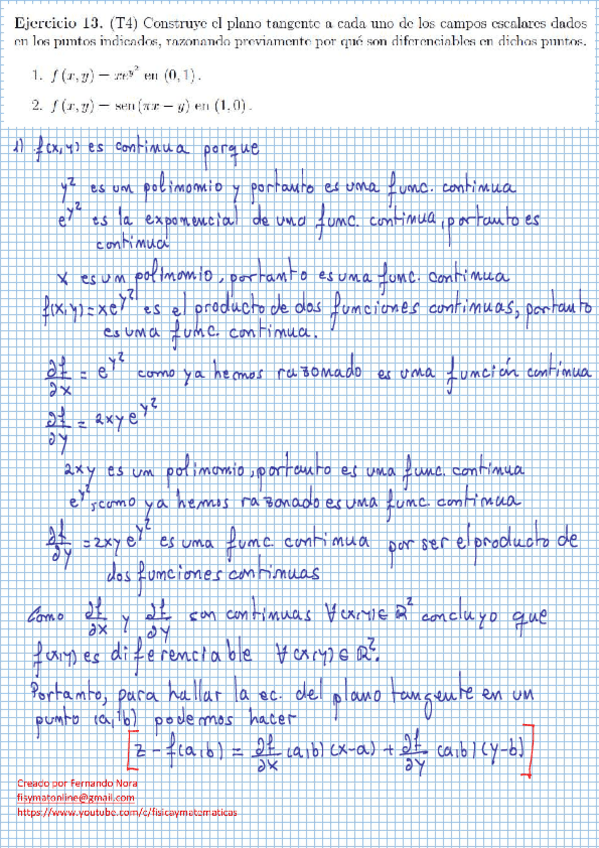 Ejercicio 13. (T4) Construye el plano tangente a cada uno de los campos escalares dados
en los puntos indicados, razonando previamente por qué son diferenciables en dichos puntos.
1. f (x, y) = xe^{y²} en (0, 1) .
2. f (x, y) = sen (πx − y) en (1, 0) .
1) f(x,y) es continua porque
y² es un polinomio y portanto es una func. continua
e^{y²} es la exponencial de una func. continua, portanto es
continua
x es un polinomio, portanto es una func. continua
f(x,y)=xe^{y²} es el producto de dos funciones continuas, portanto
es una func. continua.
∂f/∂x = e^{y²} como ya hemos razonado es una función continua
∂f/∂y = 2xye^{y²}
2xy es un polinomio, portanto es una func. continua
e^{y²}, como ya hemos razonado es una func. continua
∂f/∂y = 2xye^{y²} es una func. continua por ser el producto de
dos funciones continuas
Como ∂f/∂x y ∂f/∂y son continuas ∀(x,y)∈ℝ² concluyo que
f(x,y) es diferenciable ∀(x,y)∈ℝ².
Portanto, para hallar la ec. del plano tangente en un
punto (a,b) podemos hacer
[z - f(a,b) = ∂f/∂x (a,b)(x-a) + ∂f/∂y (a,b)(y-b)]
Creado por Fernando Nora
fisymatonline@gmail.com
https://www.youtube.com/c/fisicaymatematicas